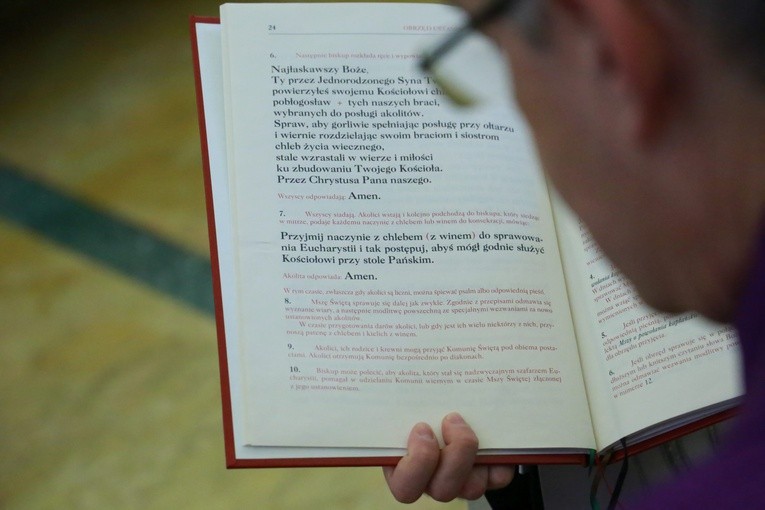 24
6. Następnie biskup rozkłada ręce i
Najłaskawszy Boże,
Ty przez Jednorodzonego Syna
powierzyłeś swojemu Kościołowi
pobłogosław + tych naszych braci,
wybranych do posługi akolitów.
Spraw, aby gorliwie spełniając posługę przy ołtarzu
i wiernie rozdzielając swoim braciom i siostrom
chleb życia wiecznego,
stale wzrastali w wierze i miłości
ku zbudowaniu Twojego Kościoła.
Przez Chrystusa Pana naszego.
Wszyscy odpowiadają: Amen.
7. Wszyscy siadają. Akolici wstają i kolejno podchodzą do biskupa, który, siedząc
w mitrze, podaje każdemu naczynie z chlebem lub winem do konsekracji, mówiąc:
Przyjmij naczynie z chlebem (z winem) do sprawowa-
nia Eucharystii i tak postępuj, abyś mógł godnie służyć
Kościołowi przy stole Pańskim.
Akolita odpowiada: Amen.
W tym czasie, zwłaszcza gdy akolitów jest wielu, można śpiewać psalm albo odpowiednią pieśń.
8. Mszę Świętą sprawuje się dalej jak zwykle. Zgodnie z przepisami odmawia się
wyznanie wiary, a następnie modlitwę powszechną ze specjalnymi wezwaniami za nowo
ustanowionych akolitów.
W czasie przygotowania darów akolici, lub gdy jest ich wielu niektórzy z nich, przy-
noszą patenę z chlebem i kielich z winem.
9. Akolici, ich rodzice i krewni mogą przyjąć Komunię Świętą pod obiema posta-
ciami. Akolici otrzymują Komunię bezpośrednio po diakonach.
10. Biskup może polecić, aby akolita, który stał się nadzwyczajnym szafarzem Eu-
charystii, pomagał w udzielaniu Komunii wiernym w czasie Mszy Świętej złączonej
z jego ustanowieniem.
4.
5.
6.
Jeśli obrzęd sprawuje się w
można odmawiać wezwania modlitwy
numerze 12.